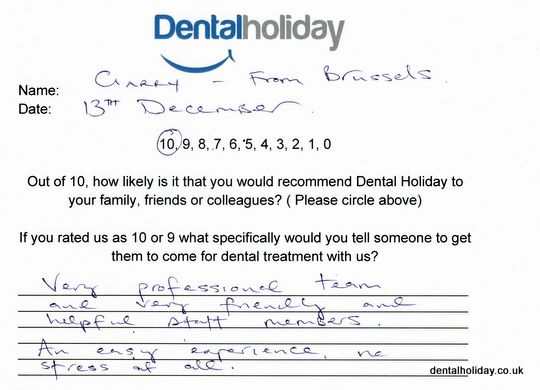 Dentalholiday
Name: Garry - From Brussels.
Date: 13TH December.
10, 9, 8, 7, 6, 5, 4, 3, 2, 1, 0
Out of 10, how likely is it that you would recommend Dental Holiday to
your family, friends or colleagues? ( Please circle above)
If you rated us as 10 or 9 what specifically would you tell someone to get
them to come for dental treatment with us?
Very professional team
and very friendly and
helpful staff members.
An easy experience, no
stress at all.
dentalholiday.co.uk